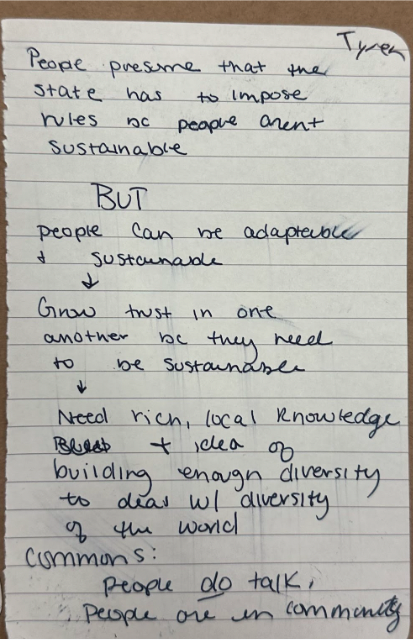 Tyren
People presume that the
state has to impose
rules bc people arent
sustainable
BUT
people can be adaptable
+ sustainable
↓
Grow trust in one
another bc they need
to be sustainable
↓
Need rich, local knowledge
+ idea of
building enough diversity
to deal w/ diversity
of the world
Commons:
people do talk,
People are in community